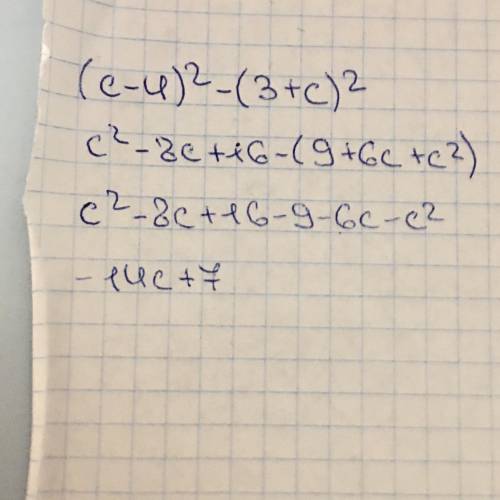 (c-4)²-(3+c)²
c²-8c+16-(9+6c+c²)
c²-8c+16-9-6c-c²
-14c+7